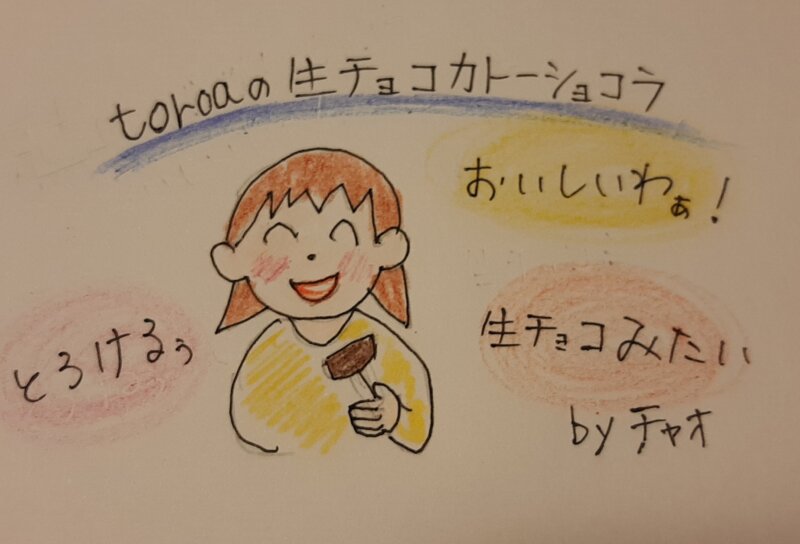 toroaの生チョコカトーショコラ
おいしいわぁ!
とろけるぅ
生チョコみたい
by チャオ